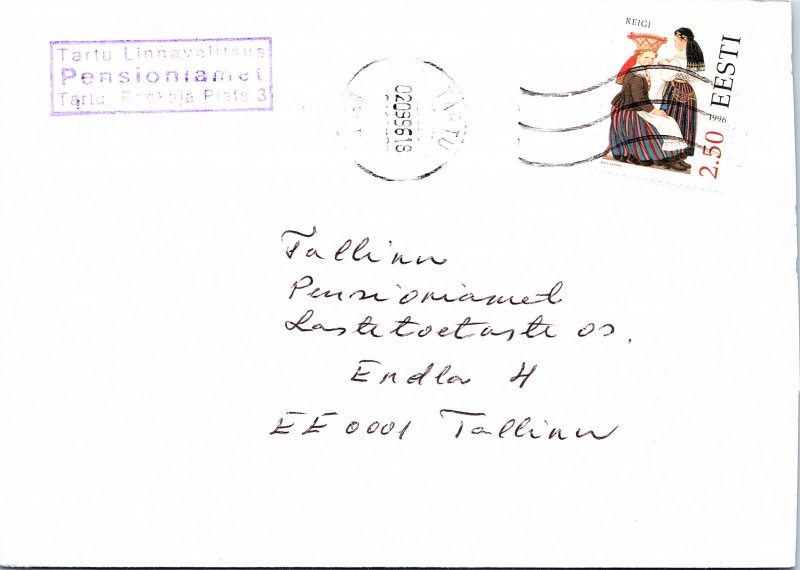 Tartu Linnavalitsus
Pensioniamet
Tartu, Plats 3
TARTU
02099618
REIGI
EESTI
1996
2.50
Tallinn
Pensioniamet
Lastetoetuste os.
Endla 4
EE0001 Tallinn